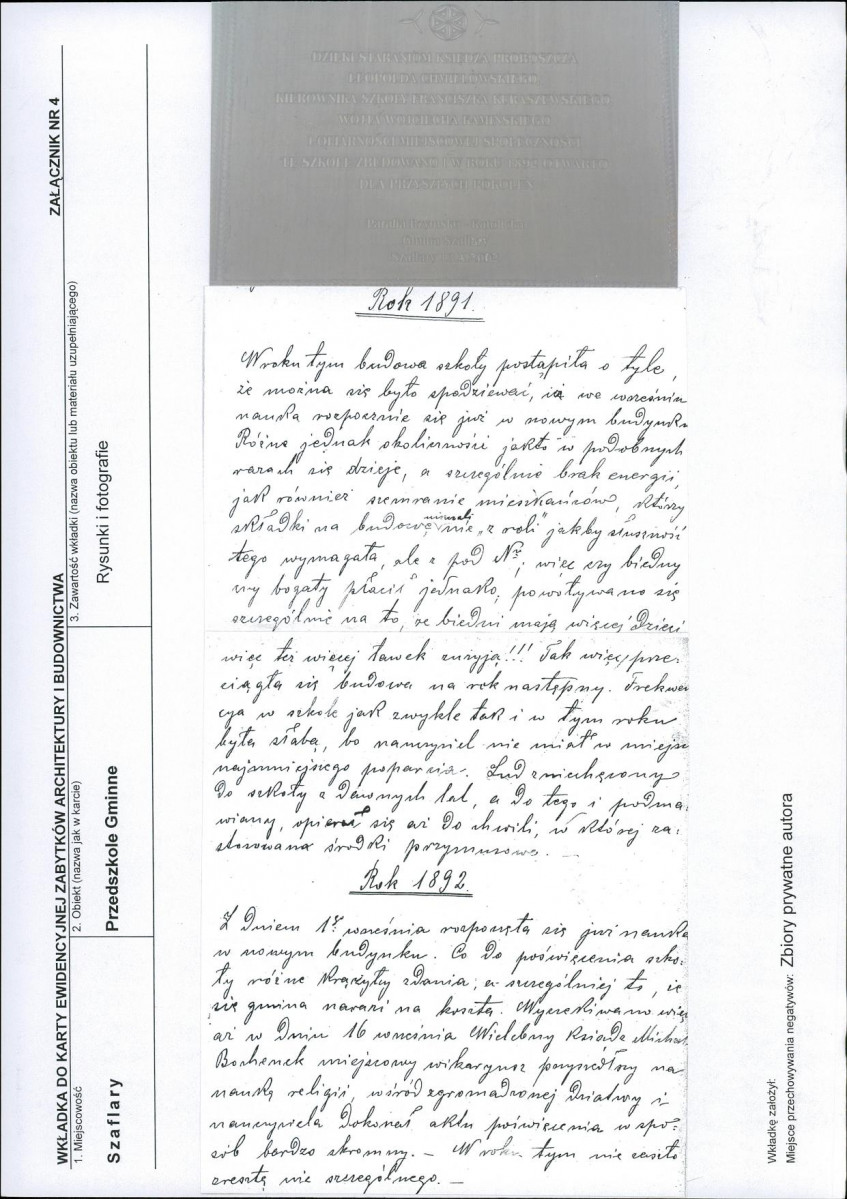 WKŁADKA DO KARTY EWIDENCYJNEJ ZABYTKÓW ARCHITEKTURY I BUDOWNICTWA
ZAŁĄCZNIK NR 4
1. Miejscowość
Szaflary
2. Obiekt (nazwa jak w karcie)
Przedszkole Gminne
3. Zawartość wkładki (nazwa obiektu lub materiału uzupełniającego)
Rysunki i fotografie
DZIĘKI STARANIOM KSIĘDZA PROBOSZCZA
LEOPOLDA CHMIELOWSKIEGO
KIEROWNIKA SZKOŁY FRANCISZKA
WÓJTA WOJCIECHA KAMIŃSKIEGO
I OFIARNOŚCI MIEJSCOWEJ SPOŁECZNOŚCI
TĘ SZKOŁĘ ZBUDOWANO I W ROKU 1892 OTWARTO
DLA PRZYSZŁYCH POKOLEŃ
Rok 1891.
W roku tym budowa szkoły postąpiła o tyle,
że można się było spodziewać, iż we wrześniu
nauka rozpocznie się już w nowym budynku
Różne jednak okoliczności jak to w podobnych
razach się dzieje, a szczególnie brak energii,
jak również szemranie mieszkańców, którzy
składki na budowę musieli nie „z roli" jakby słuszność
tego wymagała, ale z pod Nr, więc czy biedny
czy bogaty płacił jednako, powoływano się
szczególnie na to, że biedni mają więcej dzieci
więc też więcej ławek zużyją!!! Tak więc prze-
ciągła się budowa na rok następny. Frekwen
cya w szkole jak zwykle tak i w tym roku
była słabą, bo nauczyciel nie miał w miejscu
najmniejszego poparcia. Lud zniechęcony
do szkoły z dawnych lat, a do tego i podma-
wiany, opierał się aż do chwili, w której za-
stosowano środki przymusowe. —
Rok 1892.
Z dniem 1go września rozpoczęła się już nauka
w nowym budynku. Co do poświęcenia szko-
ły różne krążyły zdania, a szczególniej to, że
się gmina narazi na koszta. Wyczekiwano więc
aż w dniu 16 września Wielebny ksiądz Michał
Bochenek miejscowy wikaryusz przyszedłszy na
naukę religii, wśród zgromadzonej dziatwy i
nauczyciela dokonał aktu poświęcenia w spo-
sób bardzo skromny. — W roku tym nie zaszło
zresztą nic szczególnego. —
Wkładkę założył:
Miejsce przechowywania negatywów: Zbiory prywatne autora